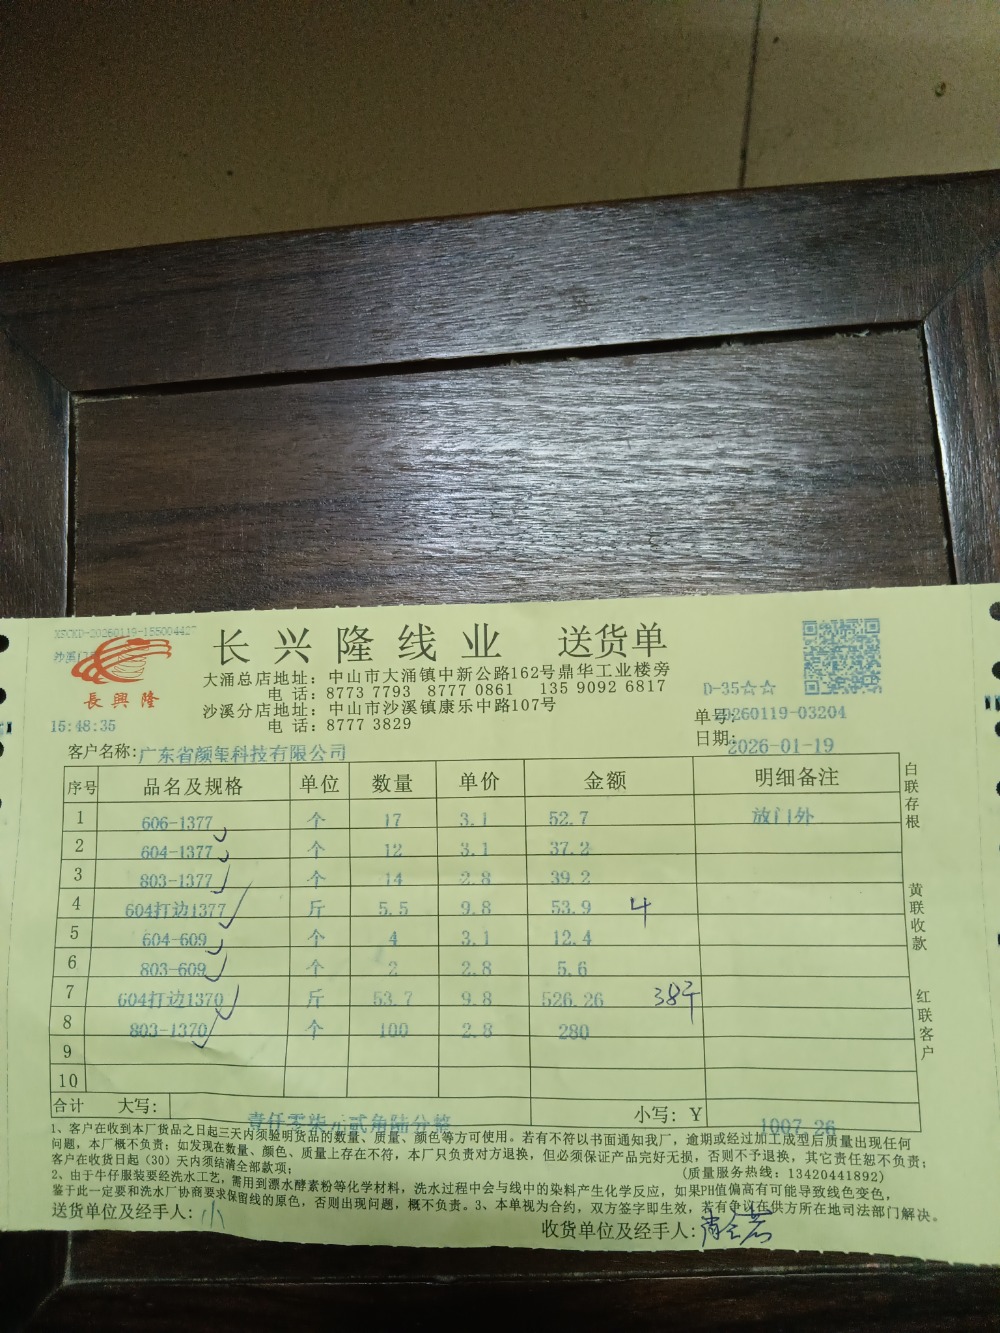 XSCKD-20260119-155004427
沙溪门
長興隆
15:48:35
长兴隆线业 送货单
大涌总店地址：中山市大涌镇中新公路162号鼎华工业楼旁
电 话：8773 7793 8777 0861 135 9092 6817
沙溪分店地址：中山市沙溪镇康乐中路107号
电 话：8777 3829
D-35☆☆
单号：20260119-03204
日期：2026-01-19
客户名称：广东省颜玺科技有限公司
序号 品名及规格 单位 数量 单价 金额 明细备注
1 606-1377 个 17 3.1 52.7 放门外
2 604-1377 个 12 3.1 37.2
3 803-1377 个 14 2.8 39.2
4 604打边1377 斤 5.5 9.8 53.9 4
5 604-609 个 4 3.1 12.4
6 803-609 个 2 2.8 5.6
7 604打边1370 斤 53.7 9.8 526.26 38个
8 803-1370 个 100 2.8 280
9
10
合计 大写： 壹仟零柒元贰角陆分整 小写：Y 1007.26
白联存根
黄联收款
红联客户
1、客户在收到本厂货品之日起三天内须验明货品的数量、质量、颜色等方可使用。若有不符以书面通知我厂，逾期或经过加工成型后质量出现任何
问题，本厂概不负责；如发现在数量、颜色、质量上存在不符，本厂只负责对方退换，但必须保证产品完好无损，否则不予退换，其它责任恕不负责；
客户在收货日起（30）天内须结清全部款项； （质量服务热线：13420441892）
2、由于牛仔服装要经洗水工艺，需用到漂水酵素粉等化学材料，洗水过程中会与线中的染料产生化学反应，如果PH值偏高有可能导致线色变色，
鉴于此一定要和洗水厂协商要求保留线的原色，否则出现问题，概不负责。3、本单视为合约，双方签字即生效，若有争议在供方所在地司法部门解决。
送货单位及经手人：小
收货单位及经手人：